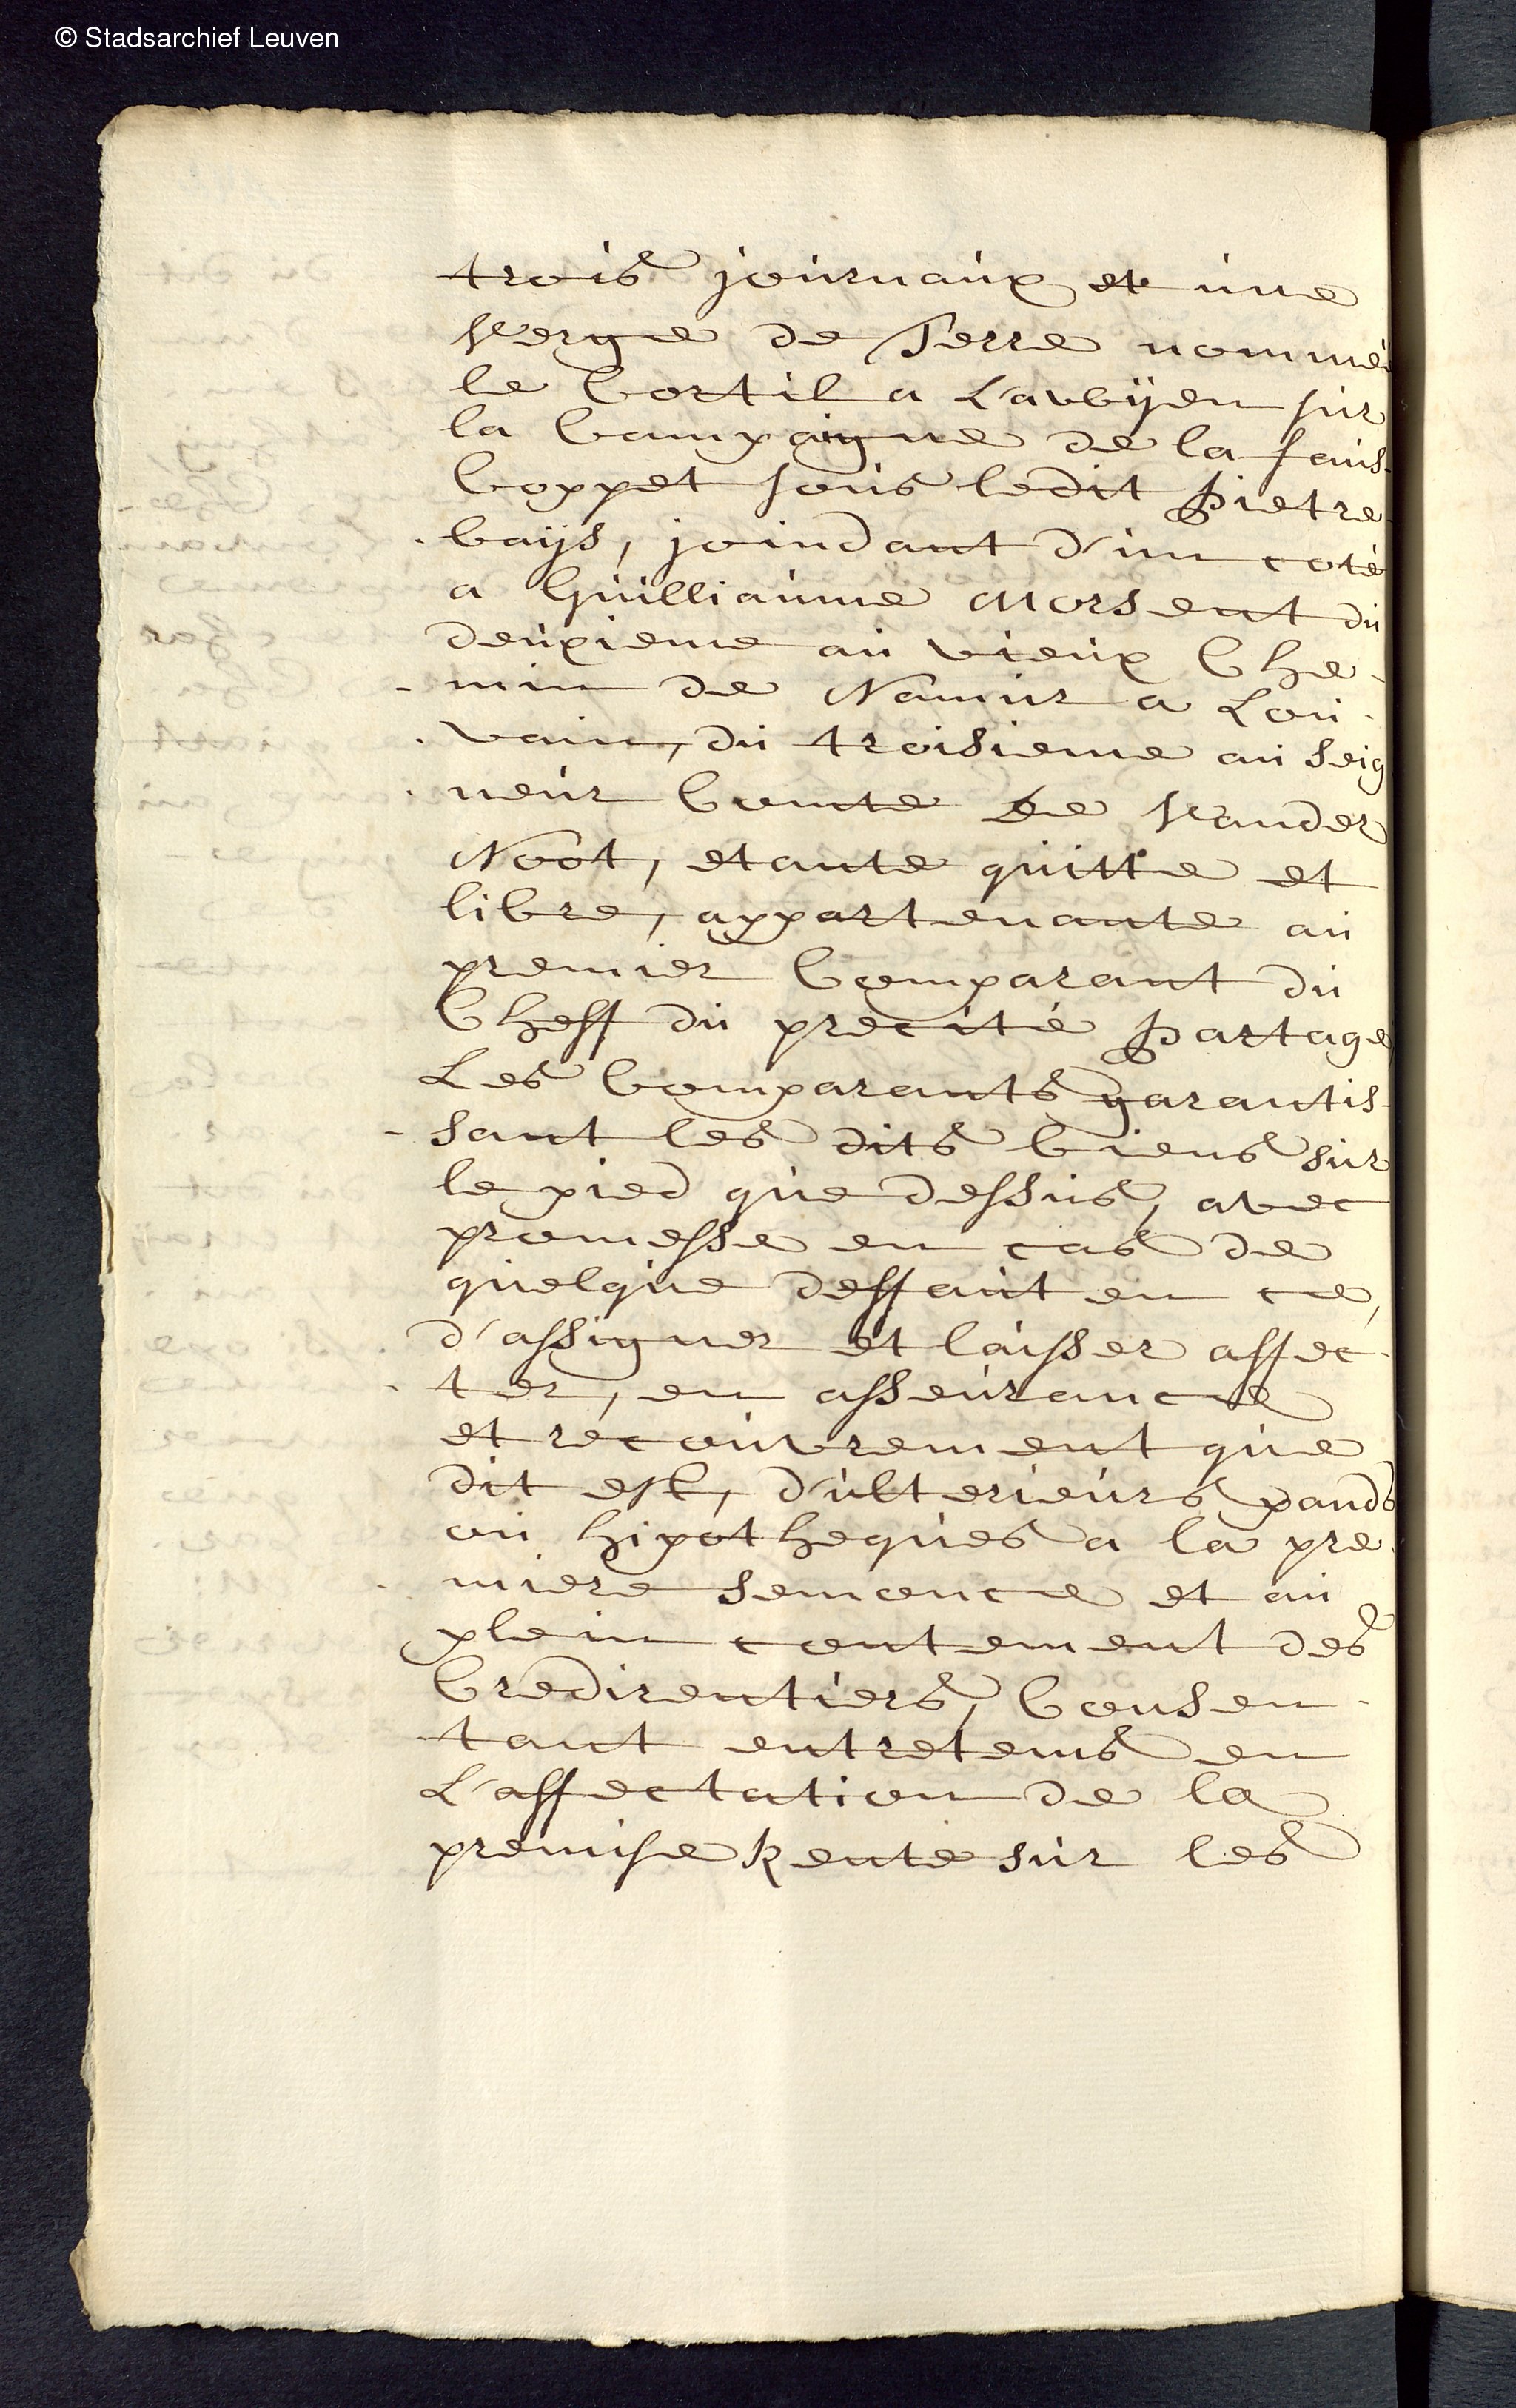 © Stadsarchief Leuven
trois journaux et une
Verge de Terre nommée
le Cortil a L'avvÿen sur
la Campaigne de la faus
Coppet sous ledit Pietre
baÿs, joindant d'un coté
a Guilliaume Morsent du
deuxieme au vieux Che-
-min de Namur a Lou-
-vain, du troisieme au Seig
neur Comte de Vander
Noot, etante quitte et
libre, appartenante au
premier Comparant du
Cheff du precité Partage
Les Comparants garantis-
-sant les dits biens sur
le pied que dessus, avec
promesse en cas de
quelque deffaut en ce,
d'assigner et laisser affec-
-ter, en asseurance
et recouvrement que
dit est, d'ulterieurs pands
ou hipotheques a la pre-
-miere semonce et au
plein contement des
Credirentiers, Consen-
tant entretems en
L'affectation de la
premise Rente sur les